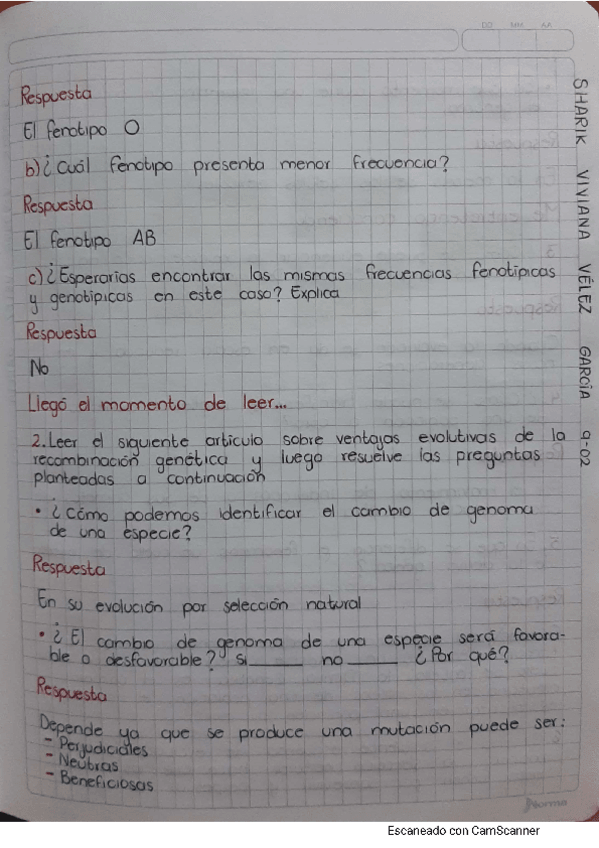 DD MM AA
Respuesta
El fenotipo O
b) ¿Cuál fenotipo presenta menor frecuencia?
Respuesta
El fenotipo AB
c) ¿Esperarias encontrar las mismas frecuencias fenotipicas
y genotipicas en este caso? Explica
Respuesta
No
Llegó el momento de leer...
2. Leer el siguiente articulo sobre ventajas evolutivas de la
recombinación genética y luego resuelve las preguntas
planteadas a continuación
• ¿Cómo podemos identificar el cambio de genoma
de una especie?
Respuesta
En su evolución por selección natural
• ¿El cambio de genoma de una especie será favora-
ble o desfavorable? si____ no____ ¿Por qué?
Respuesta
Depende ya que se produce una mutación puede ser:
- Perjudiciales
- Neutras
- Beneficiosas
SHARIK VIVIANA VÉLEZ GARCÍA 9-02
Norma
Escaneado con CamScanner